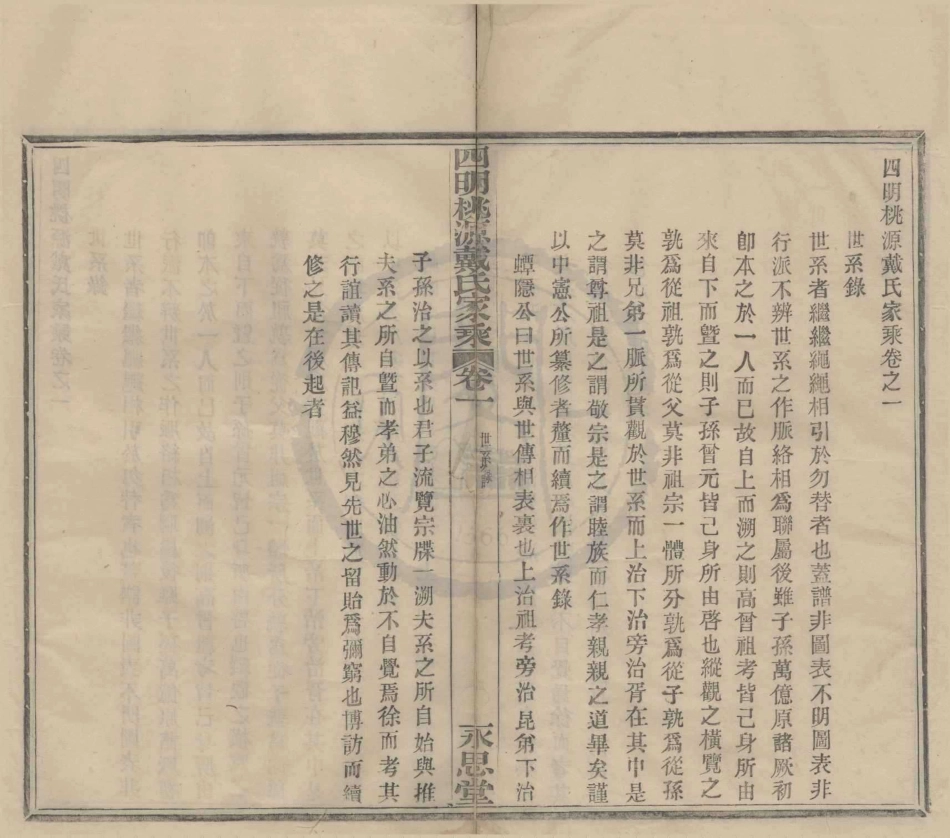 四明桃源戴氏家乘卷之一
世系錄
世系者繼繼繩繩相引於勿替者也蓋譜非圖表不明圖表非
行派不辨世系之作脈絡相爲聯屬後雖子孫萬億原諸厥初
卽本之於一人而已故自上而溯之則高曾祖考皆己身所由
來自下而曁之則子孫曾元皆己身所由啓也縱觀之橫覽之
孰爲從祖孰爲從父莫非祖宗一體所分孰爲從子孰爲從孫
莫非兄弟一脈所貫觀於世系而上治下治旁治胥在其中是
之謂尊祖是之謂敬宗是之謂睦族而仁孝親親之道畢矣謹
以中憲公所纂修者釐而續焉作世系錄
蟫隱公曰世系與世傳相表裏也上治祖考旁治昆弟下治
四明桃源戴氏家乘
卷一
世系錄
永思堂
子孫治之以系也君子流覽宗牒一溯夫系之所自始與推
夫系之所自曁而孝弟之心油然動於不自覺焉徐而考其
行誼讀其傳記益穆然見先世之留貽爲彌窮也博訪而續
修之是在後起者